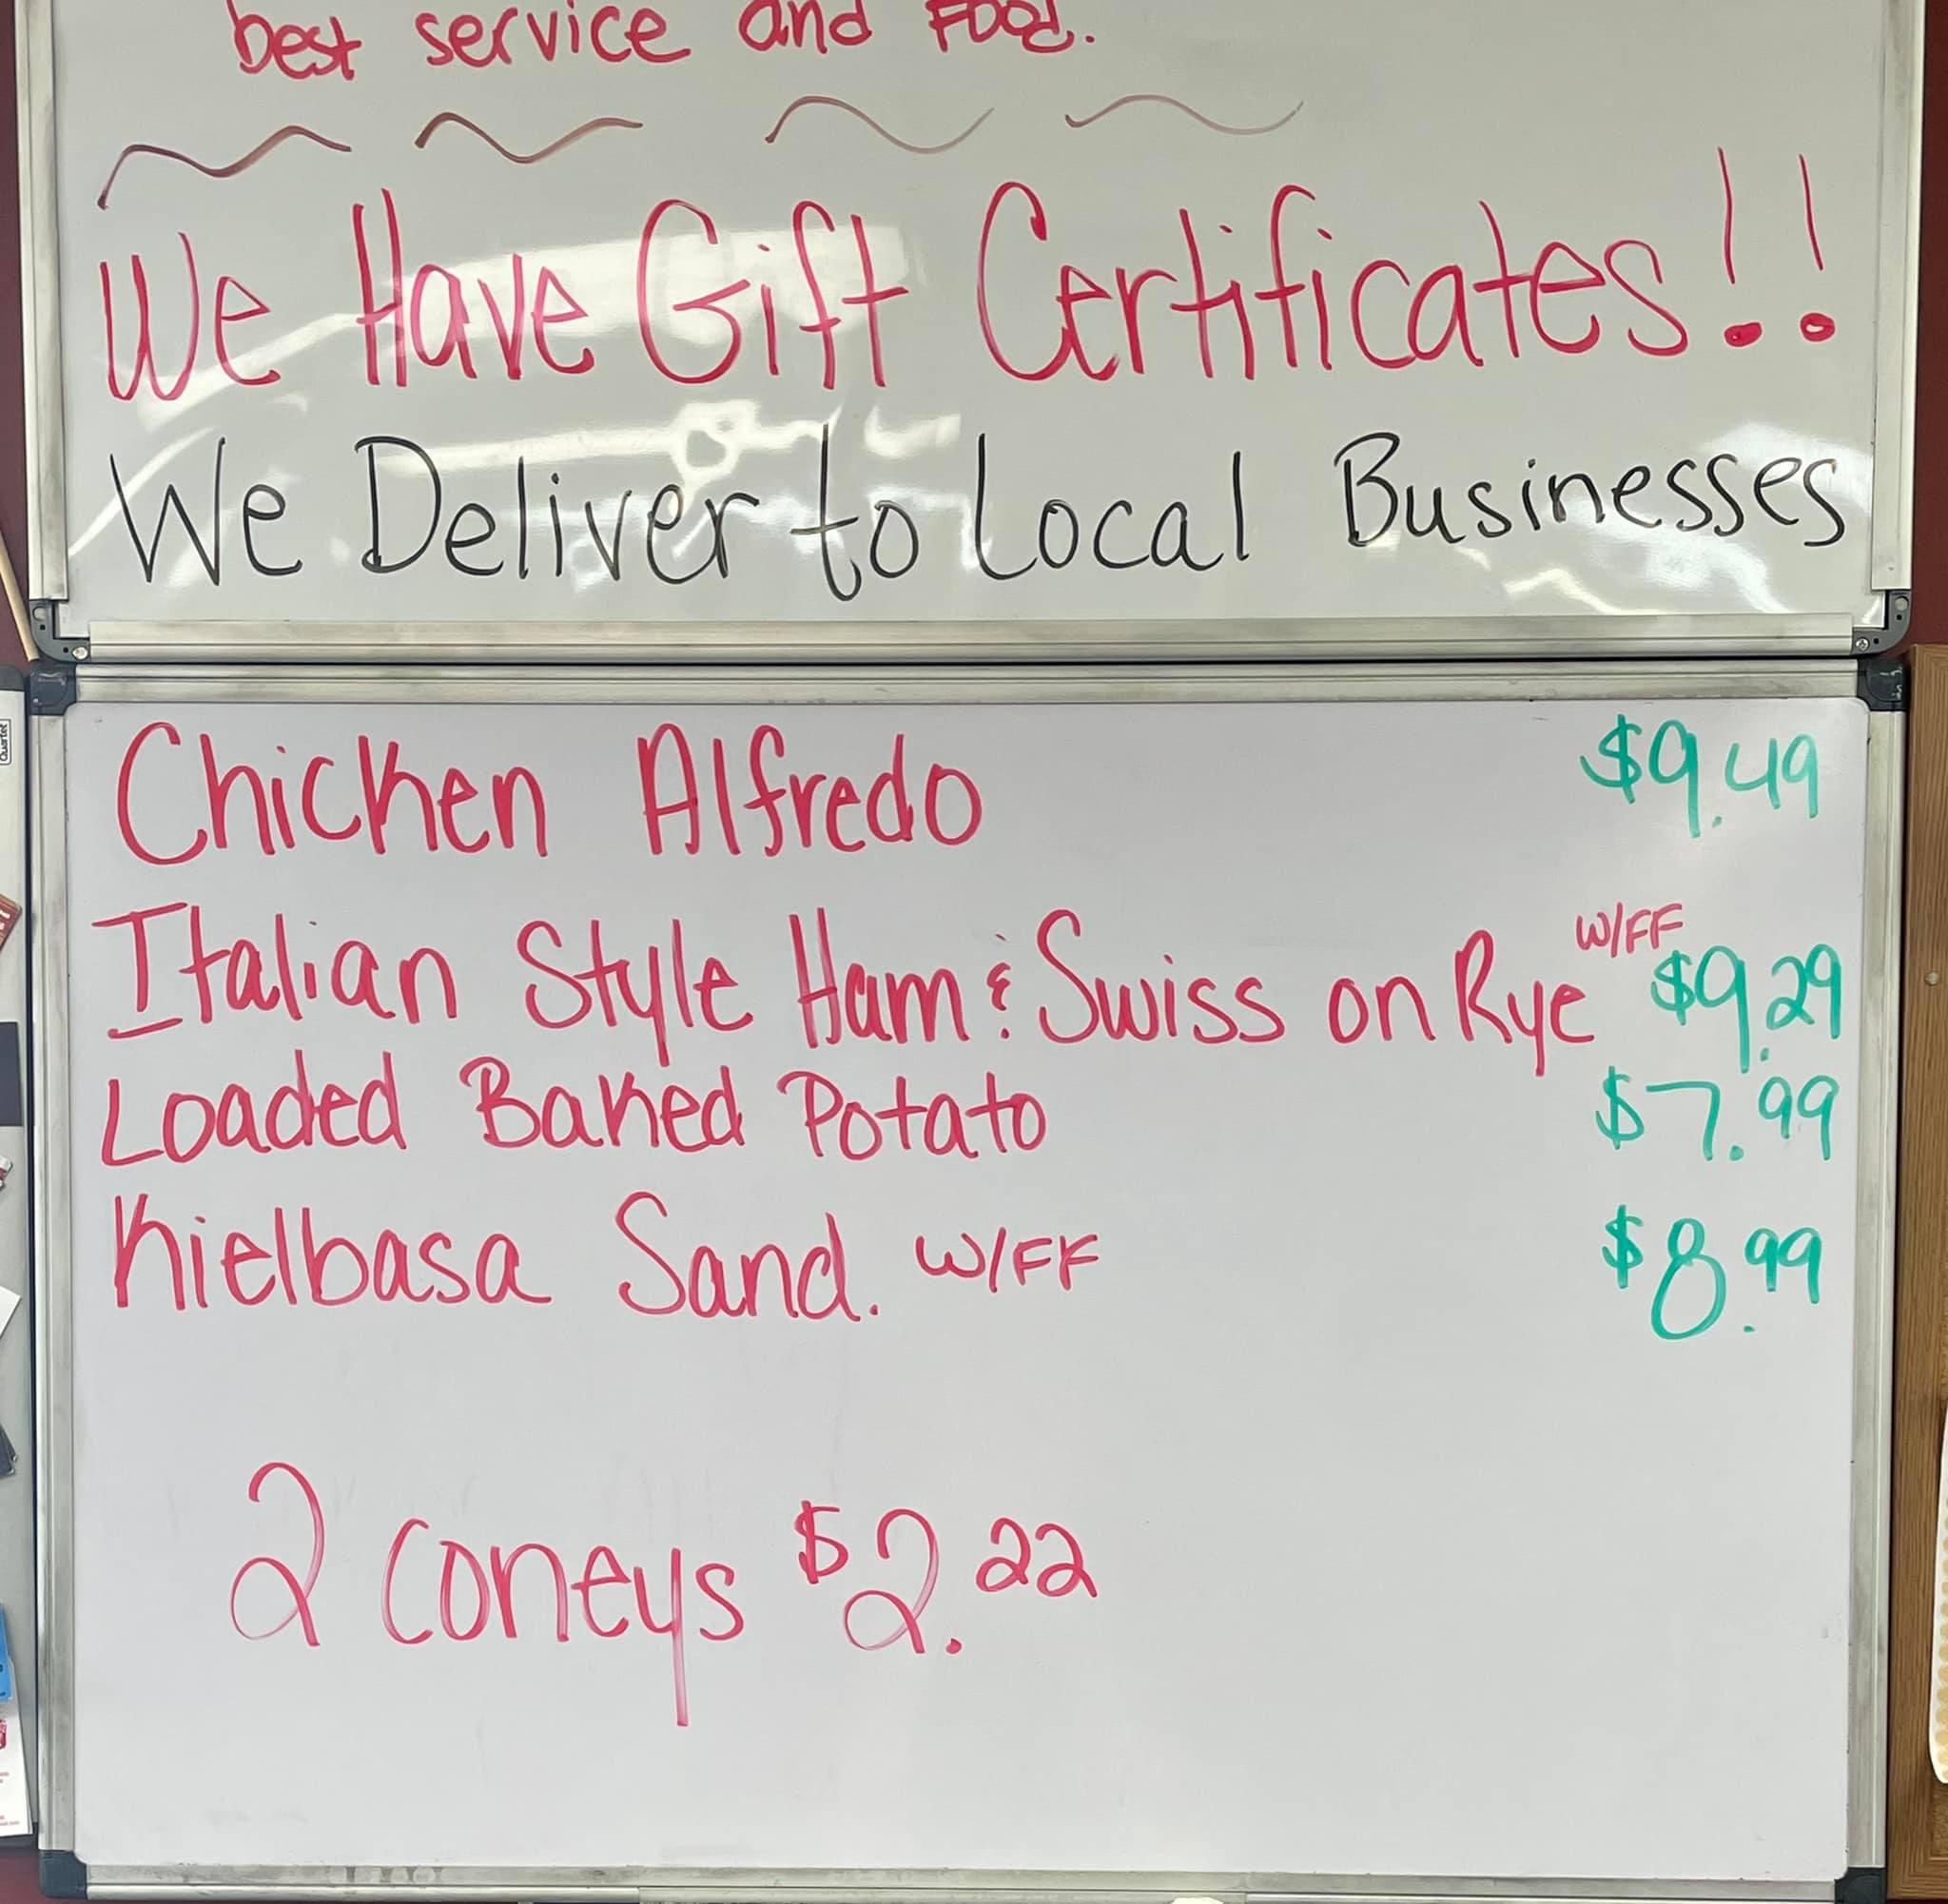 best service and Food.
We Have Gift Certificates!!
We Deliver to Local Businesses
Chicken Alfredo $9.49
Italian Style Ham & Swiss on Rye W/FF $9.29
Loaded Baked Potato $7.99
Kielbasa Sand. W/FF $8.99
2 coneys $2.22
Quartet